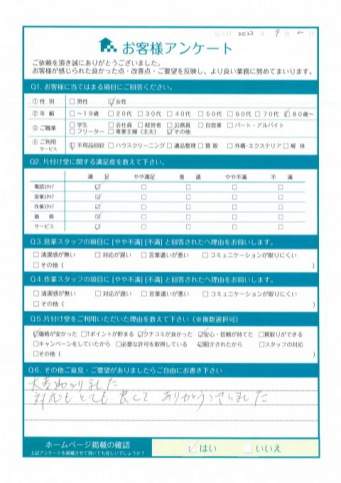 2022 年 9 月
お客様アンケート
ご依頼を頂き誠にありがとうございました。
お客様が感じられた良かった点・改善点・ご要望を反映し、より良い業務に努めてまいります。
Q1. お客様に当てはまる項目にご回答ください。
①性 別 □男性 ☑女性
②年 齢 □～19歳 □20代 □30代 □40代 □50代 □60代 □70代 ☑80歳～
③ご職業 □学生 □会社員 □経営者 □公務員 □自営業 □パート・アルバイト
□フリーター □専業主婦（主夫） ☑その他
④ご利用サービス ☑不用品回収 □ハウスクリーニング □遺品整理 □買取 □外構・エクステリア □解体
Q2. 片付け堂に関する満足度を教えて下さい。
満 足 やや満足 普 通 やや不満 不 満
電話スタッフ ☑ □ □ □ □
営業スタッフ ☑ □ □ □ □
作業スタッフ ☑ □ □ □ □
価 格 ☑ □ □ □ □
サービス ☑ □ □ □ □
Q3.営業スタッフの項目に[やや不満][不満]と回答された方へ理由をお伺いします。
□清潔感が無い □対応が遅い □言葉遣いが悪い □コミュニケーションが取りにくい
□その他（ ）
Q4.作業スタッフの項目に[やや不満][不満]と回答された方へ理由をお伺いします。
□清潔感が無い □対応が遅い □言葉遣いが悪い □コミュニケーションが取りにくい
□その他（ ）
Q5.片付け堂をご利用いただいた理由を教えて下さい（※複数選択可）
☑価格が安かった □Tポイントが貯まる ☑クチコミが良かった ☑安心・信頼が持てた □買取りができる
□キャンペーンをしていたから □必要な許可を取得している ☑紹介されたから □スタッフの対応
□その他（ ）
Q6. その他ご意見・ご要望がありましたらご自由にお書き下さい
大変助かりました
対応もとても良くて ありがとうございました
ホームページ掲載の確認
上記アンケートを掲載させて頂いても宜しいでしょうか？
☑はい □いいえ